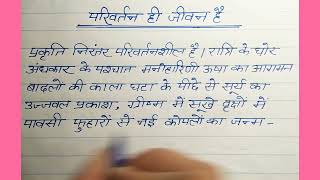 परिवर्तन ही जीवन है
प्रकृति निरंतर परिवर्तनशील है। रात्रि के घोर
अंधकार के पश्चात मनोहारिणी ऊषा का आगमन
बादलों की काली घटा के पीछे से सूर्य का
उज्जवल प्रकाश, ग्रीष्म में सूखे वृक्षों में
पावसी फुहारों से नई कोपलों का जन्म -